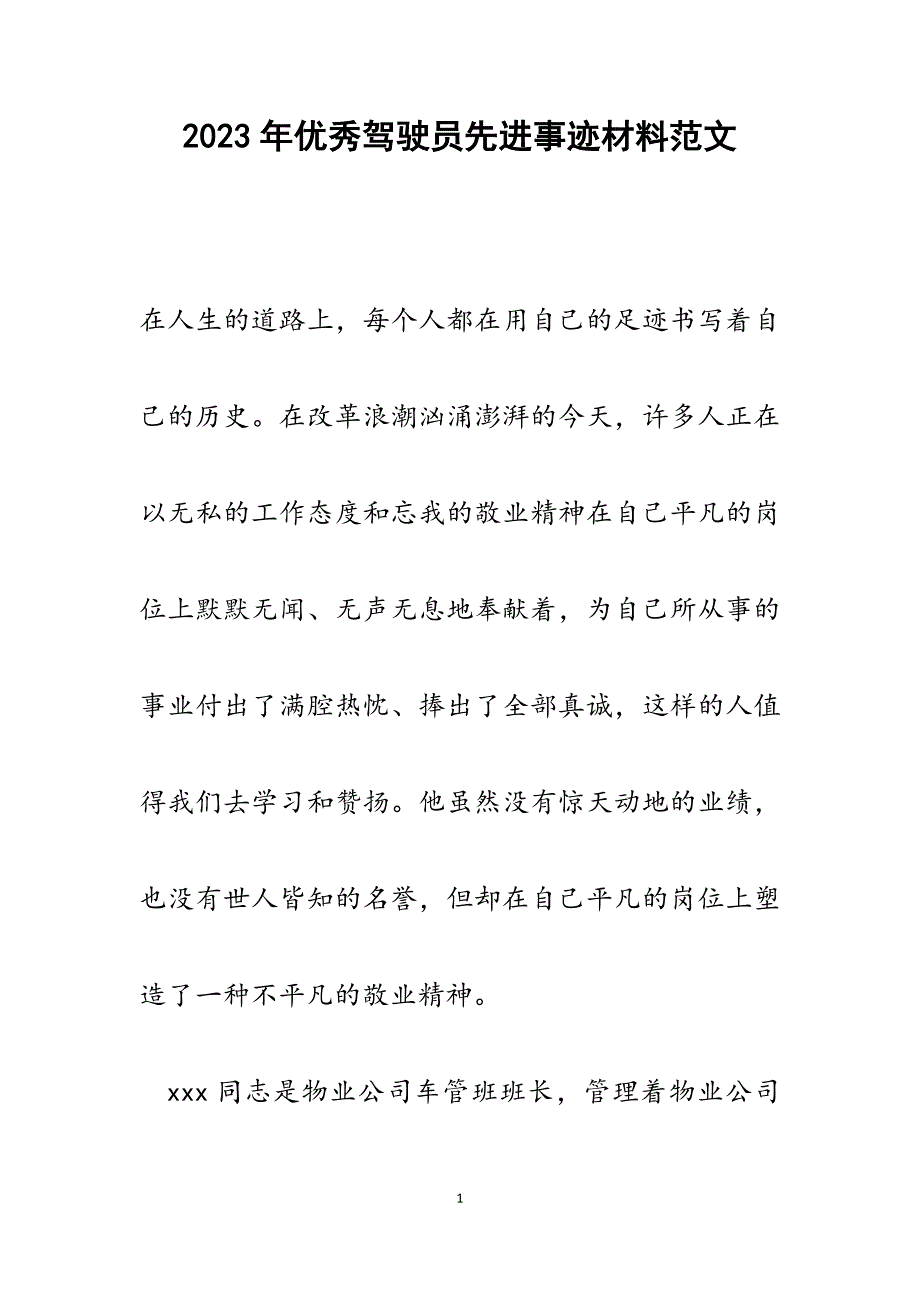 2023年优秀驾驶员先进事迹材料范文
在人生的道路上，每个人都在用自己的足迹书写着自
己的历史。在改革浪潮汹涌澎湃的今天，许多人正在
以无私的工作态度和忘我的敬业精神在自己平凡的岗
位上默默无闻、无声无息地奉献着，为自己所从事的
事业付出了满腔热忱、捧出了全部真诚，这样的人值
得我们去学习和赞扬。他虽然没有惊天动地的业绩，
也没有世人皆知的名誉，但却在自己平凡的岗位上塑
造了一种不平凡的敬业精神。
xxx同志是物业公司车管班班长，管理着物业公司
1